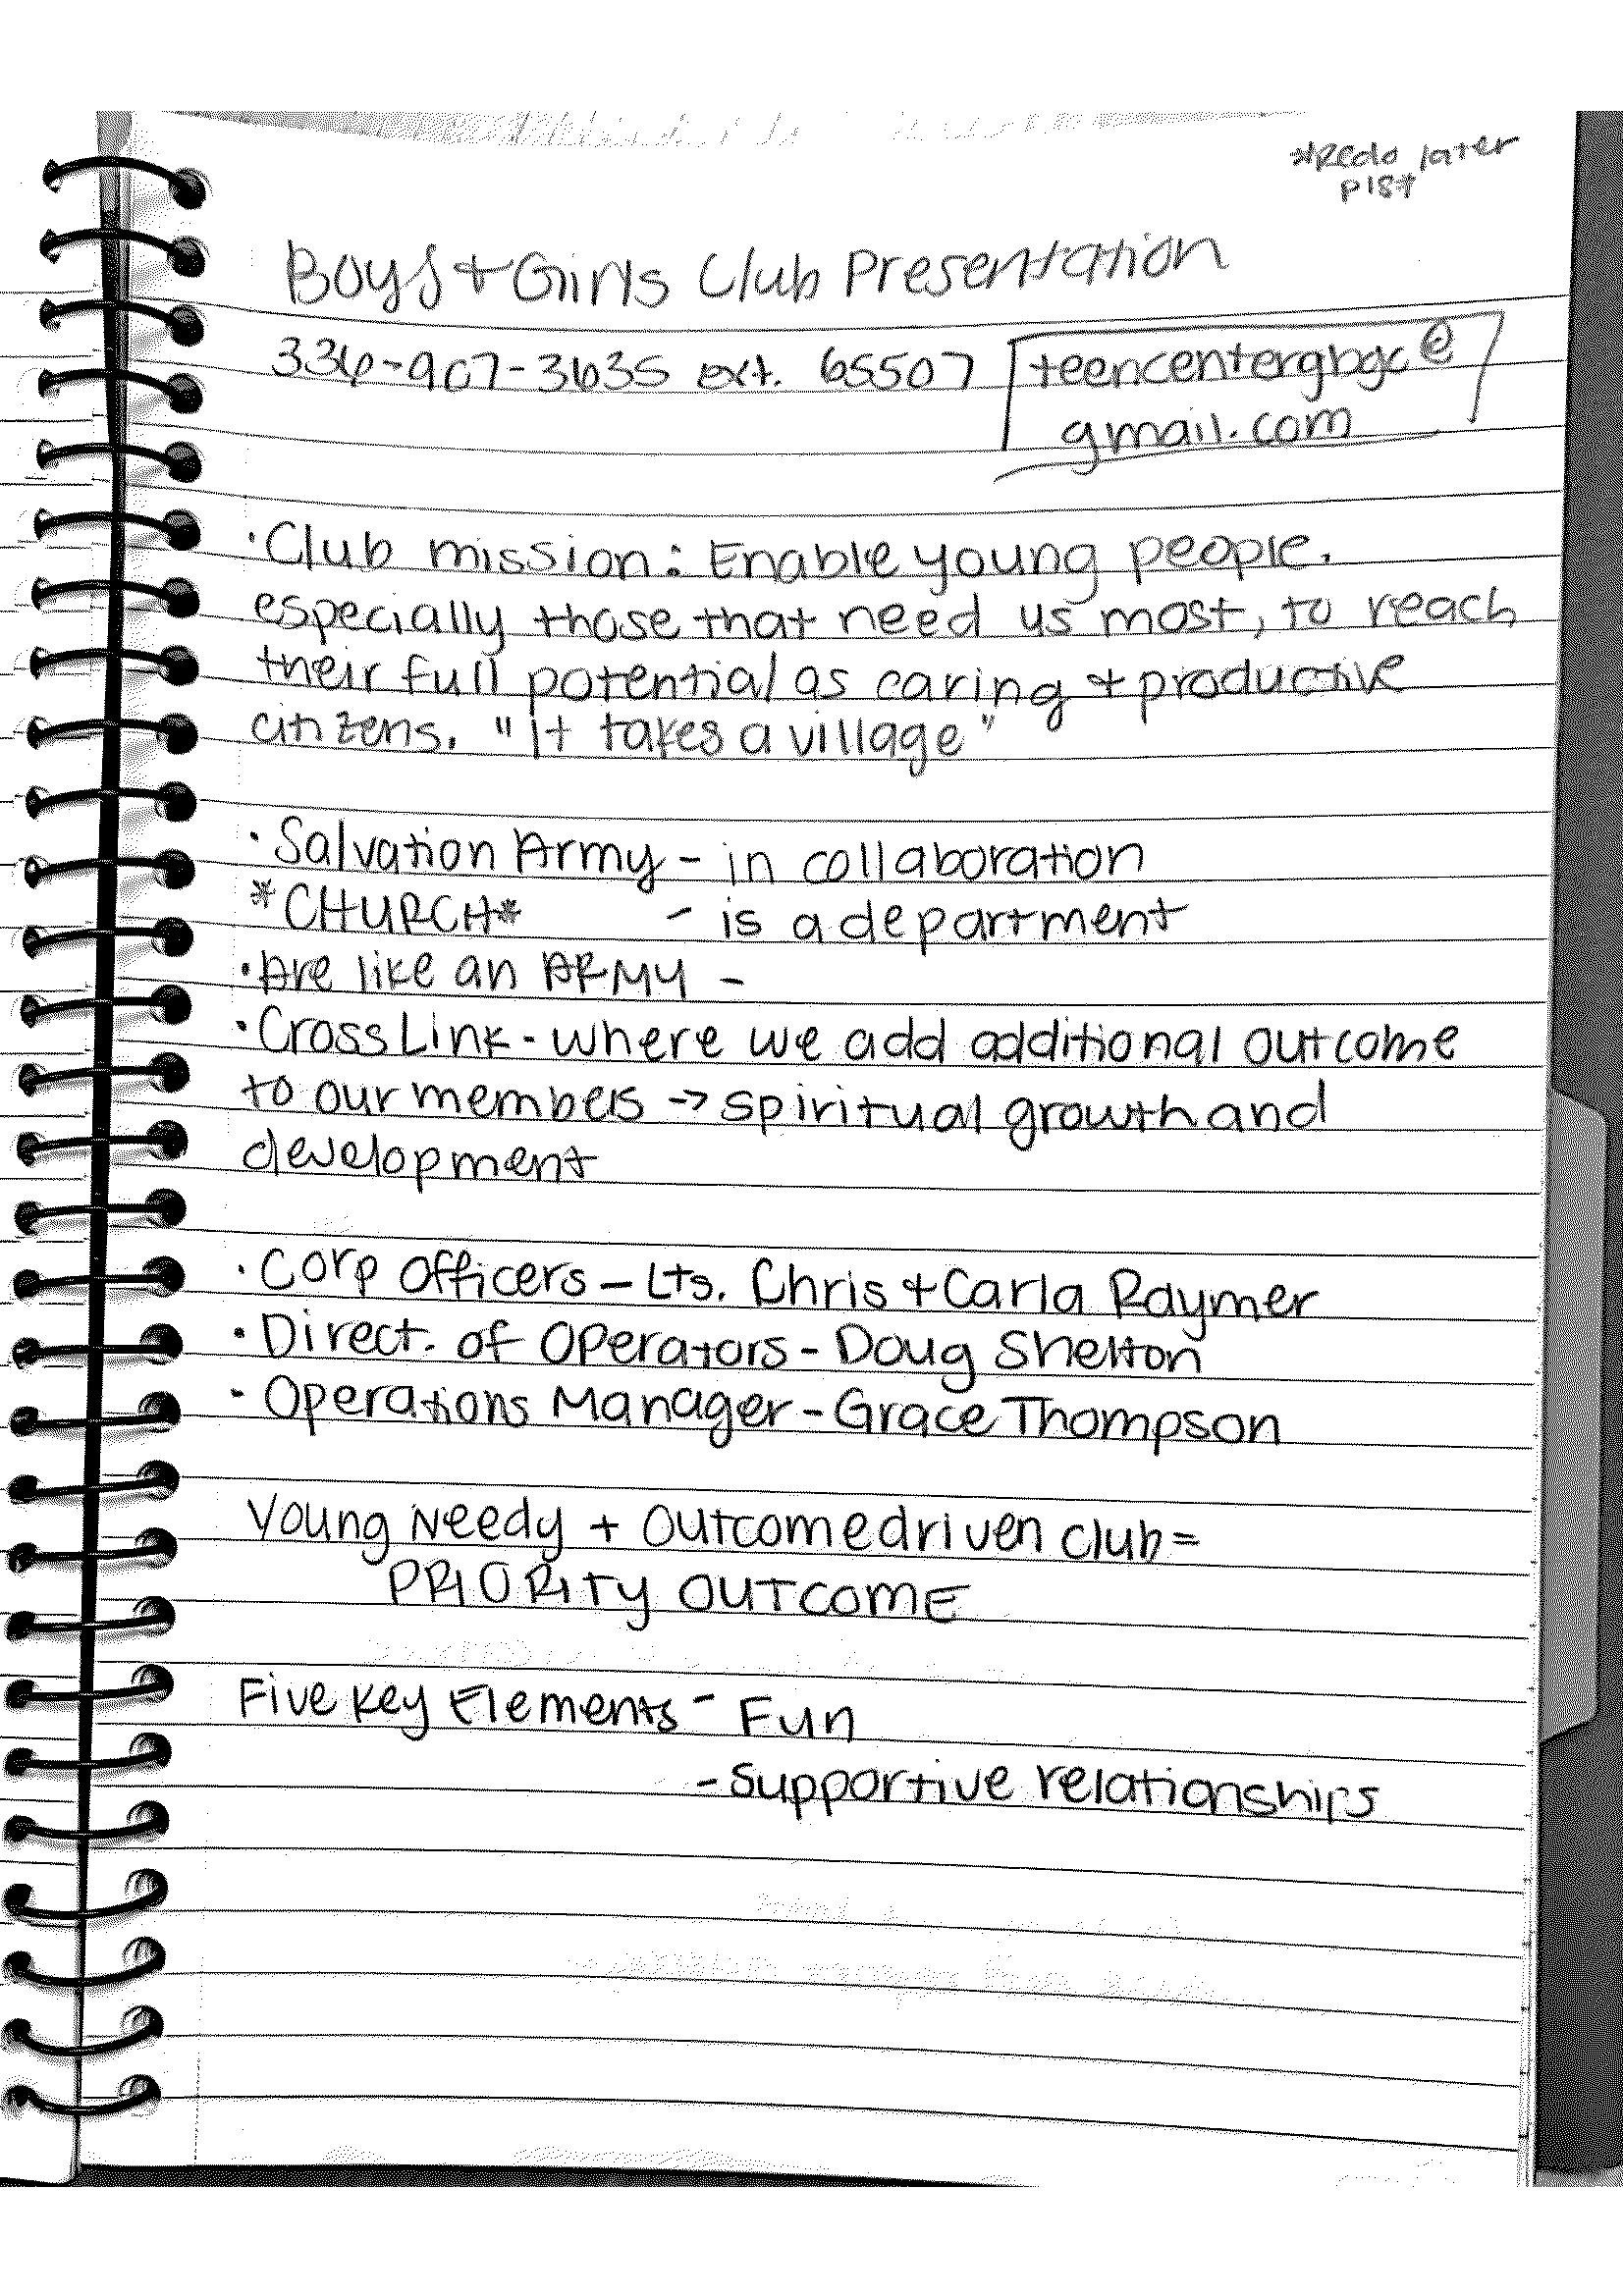 *Redo later
Boys + Girls Club Presentation
336-907-3635 ext. 65507
teencentergbgc@
gmail.com
· Club mission: Enable young people.
especially those that need us most, to reach
their full potential as caring + productive
citizens. "It takes a village"
· Salvation Army - in collaboration
*CHURCH* - is a department
· Are like an ARMY -
· Cross Link - where we add additional outcome
to our members → spiritual growth and
development
· Corp Officers - Lts. Chris + Carla Raymer
· Direct. of Operators - Doug Shelton
· Operations Manager - Grace Thompson
Young Needy + Outcome driven club =
PRIORITY OUTCOME
Five Key Elements - Fun
- supportive relationships